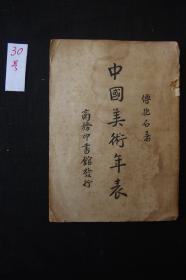 30
号
傅抱石著
中國美術年表
商務印書館發行